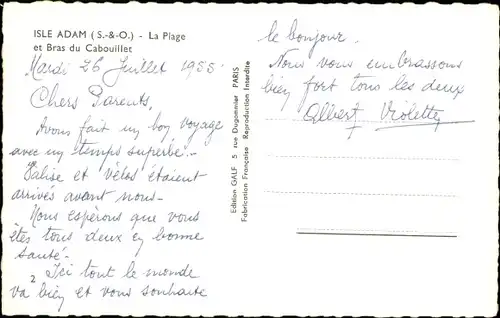 ISLE ADAM (S.-&-O.) - La Plage
et Bras du Cabouillet
Mardi 26 Juillet 1955.
Chers Parents,
Avons fait un bon voyage
avec un temps superbe.-
Valise et vélos étaient
arrivés avant nous-
Nous espérons que vous
êtes tous deux en bonne
santé-
2 Ici tout le monde
va bien et vous souhaite
Edition GALF 5 rue Dugommier PARIS
Fabrication Française Reproduction Interdite
le bonjour.
Nous vous embrassons
bien fort tous les deux
Albert Violette